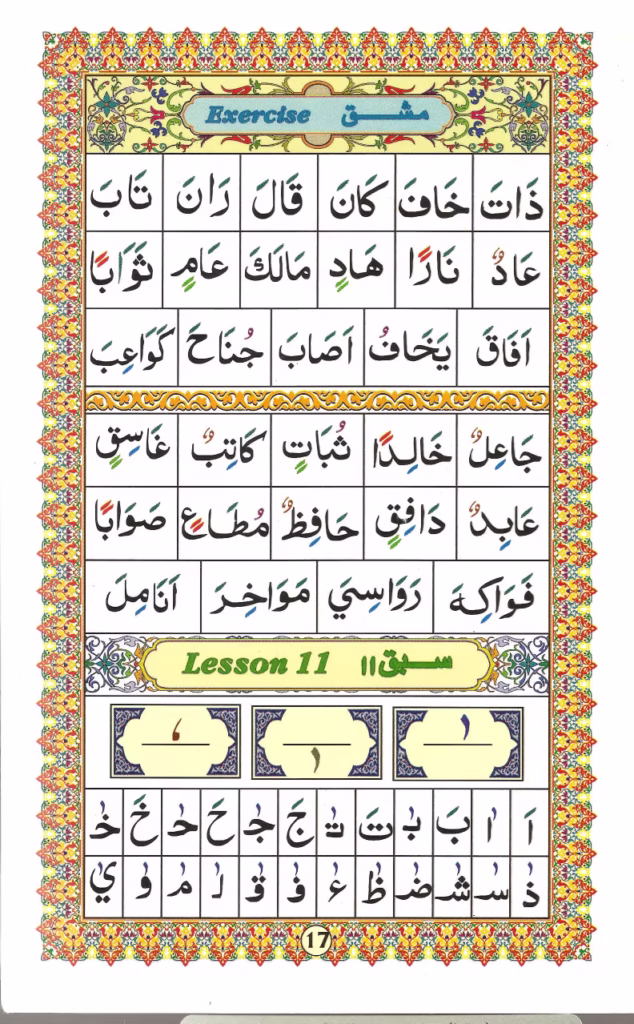 Exercise مشق
ذَاتَ خَافَ كَانَ قَالَ رَانَ تَابَ
عَادٌ نَارًا هَادٍ مَالَكَ عَامٍ ثَوَابًا
اَفَاقَ يَخَافُ اَصَابَ جُنَاحَ كَوَاعِبَ
جَاعِلٌ خَالِدًا ثُبَاتٍ كَاتِبٌ غَاسِقٍ
عَابِدٌ دَافِقٍ حَافِظٌ مُطَاعٍ صَوَابًا
فَوَاكِهَ رَوَاسِيَ مَوَاخِرَ اَنَامِلَ
Lesson 11 سبق ۱۱
ٰ ٖ ٗ
اَ اٰ بَ بٰ تَ تٰ جَ جٰ حَ حٰ خَ خٰ
ذٰ سٰ شٰ ضٰ ظٰ عٰ فٰ قٰ لٰ مٰ وٰ يٰ
17